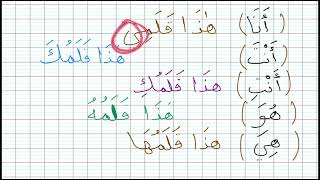 (أَنَا) هٰذَا قَلَمِي
(أَنْتَ) هٰذَا قَلَمُكَ
(أَنْتِ) هٰذَا قَلَمُكِ
(هُوَ) هٰذَا قَلَمُهُ
(هِيَ) هٰذَا قَلَمُهَا